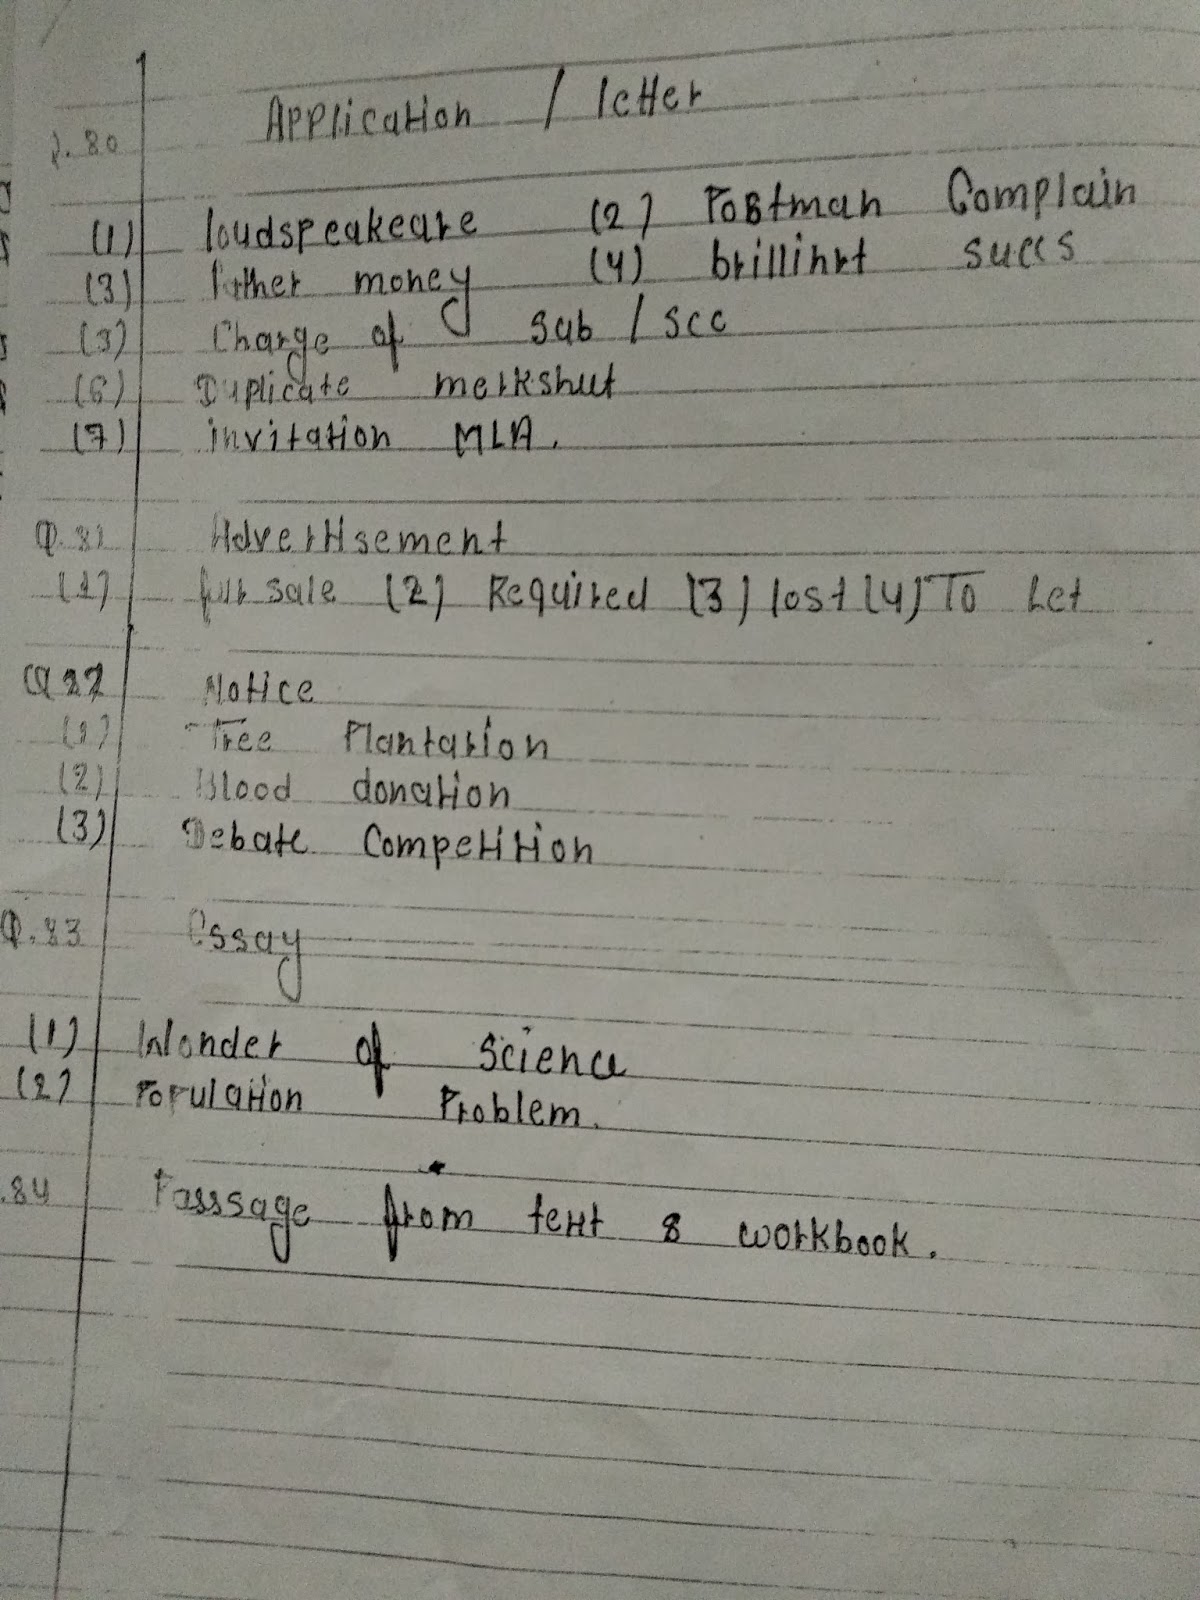 Q.80 Application / letter
(1) loudspeakeare (2) Postman Complain
(3) father money (4) brillint succs
(5) Charge of sub / scc
(6) Duplicate merkshut
(7) invitation MLA.
Q.81 Advertisement
(1) for sale (2) Required (3) lost (4) To Let
Q 22 Notice
(1) Tree Plantation
(2) Blood donation
(3) Debate Competition
Q.83 Essay
(1) Wonder of Science
(2) Population Problem.
.84 Passsage from text & workbook.